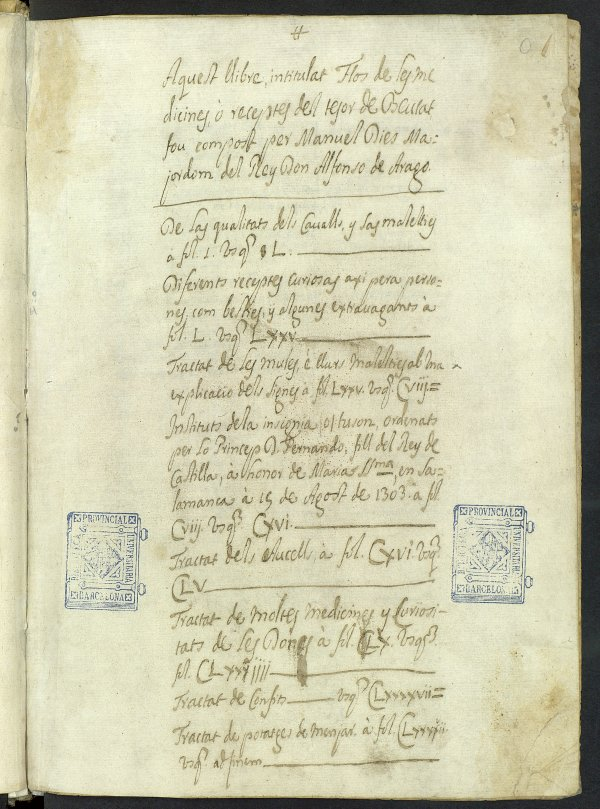 01
Aquest llibre, intitulat Flos de les me
dicines, ò receptes del tesor de Beutat
fou compost per Manuel Dies Ma-
jordom del Rey Don Alfonso de Arago.
De las qualitats dels Cavalls, y las malelties
a fol. 1. usq. L.
Diferents receptes curiosas axi pera perso-
nes, com besties, y algunes extravagants à
fol. L. usq. Lxxv
Tractat de les mules, è llurs malelties ab una
explicacio dels signes à fol. Lxxv. usq. Cviij=
Instituts de la insignia, ol tuson, ordenats
per lo Princep D. Fernando, fill del Rey de
Castilla, à honor de Maria SSma. en Sa-
lamanca à 15 de Agost de 1303. a fol.
Cviij. usq. Cxvi.
Tractat dels Aucells, à fol. Cxvi. usq.
CLV
Tractat de moltes medicines y curiosi-
tats de les Dones à fol. CLX. usq.
fol. CLxxiiij
Tractat de Confits usq. CLxxxxvii=
Tractat de potatges de menjar. à fol.
usq. ad finem
BIBLIOTECA PROVINCIAL UNIVERSITARIA BARCELONA
PROVINCIAL UNIVERSITARIA BARCELONA